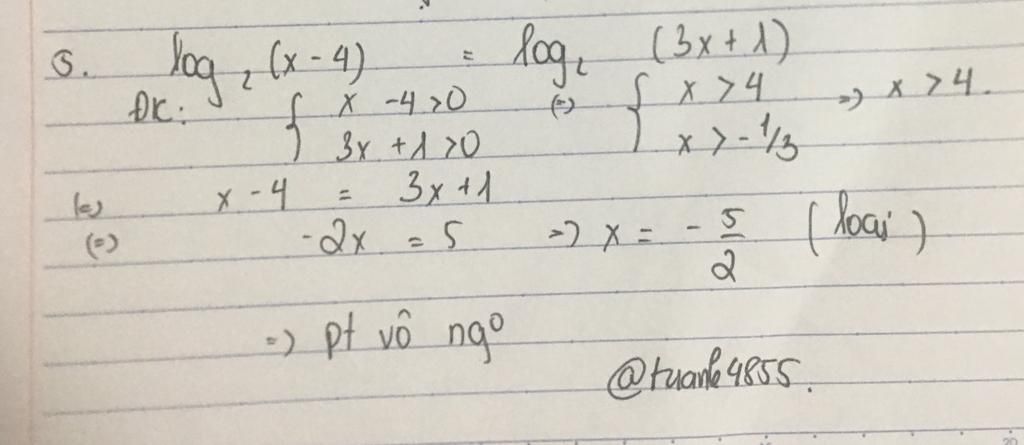 5. log₂ (x - 4) = log₂ (3x + 1)
ĐK: { x - 4 > 0 (=) { x > 4 => x > 4.
3x + 1 > 0 x > - 1/3
(=) x - 4 = 3x + 1
(=) -2x = 5 => x = - 5/2 (loại)
=) pt vô ngº
@tuanle4855.